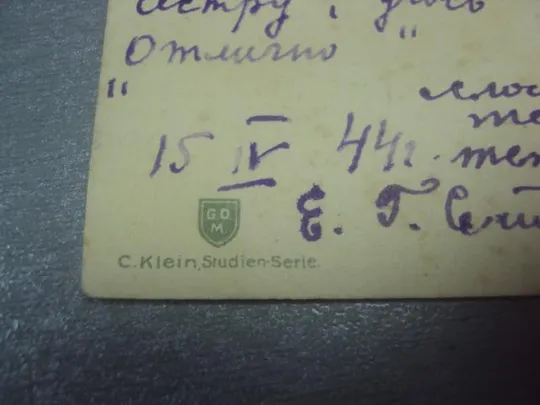 астру, учись
„Отлично“
15 IV 44 г.
Е. Г.
GDM
C. Klein, Studien-Serie.